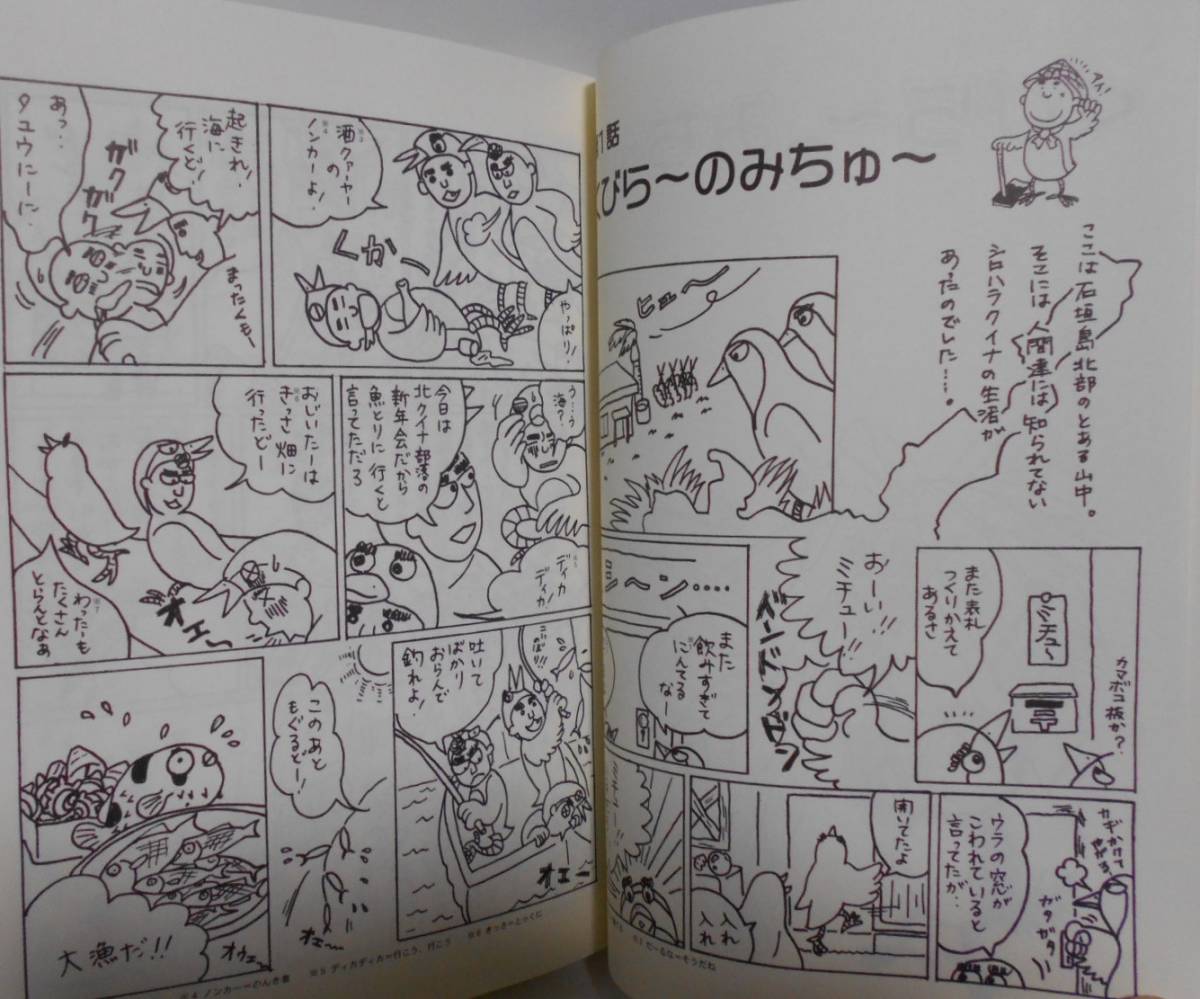 1話
びら〜のみちゅ〜
アイ!
ここは石垣島北部のとある山中。
そこには人間達には知られてない
シロハラクイナの生活が
あったのでした…。
ヒュ〜
また表札
つくりかえて
あるさ
ミチュ〜
カマボコ板か?
おーい
ミチュー
ドンドンドン
シーン……
また
飲みすぎて
にんてる
なー
カギかけて
やがる
ガタガタ
ウラの窓が
こわれていると
言ってたが…
開いてたよ
入れ
入れ
※1 だーるなーそうだね
酒クァーヤー
の
ノンカーよ!
くかー
やっぱり!
起きれ!
海に
行くど!
ガク
ガク
まったくもー
あっ…
タユウにーに…
う…う
海?
今日は
北クイナ部落の
新年会だから
魚とりに行くと
言ってただろ
ディカ
ディカ!
おじいたーは
きっさ畑に
行ったどー
わったーも
たくさん
とらんとなぁ
オエ〜
こばり!!
吐いて
ばかり
おらんで
釣れよ!
オエー
このあと
もぐるどー!
オェ〜
大漁だ!!
オウェー
※4 ノンカー=のんき者
※5 ディカディカ=行こう、行こう
※6 きっさーとっくに